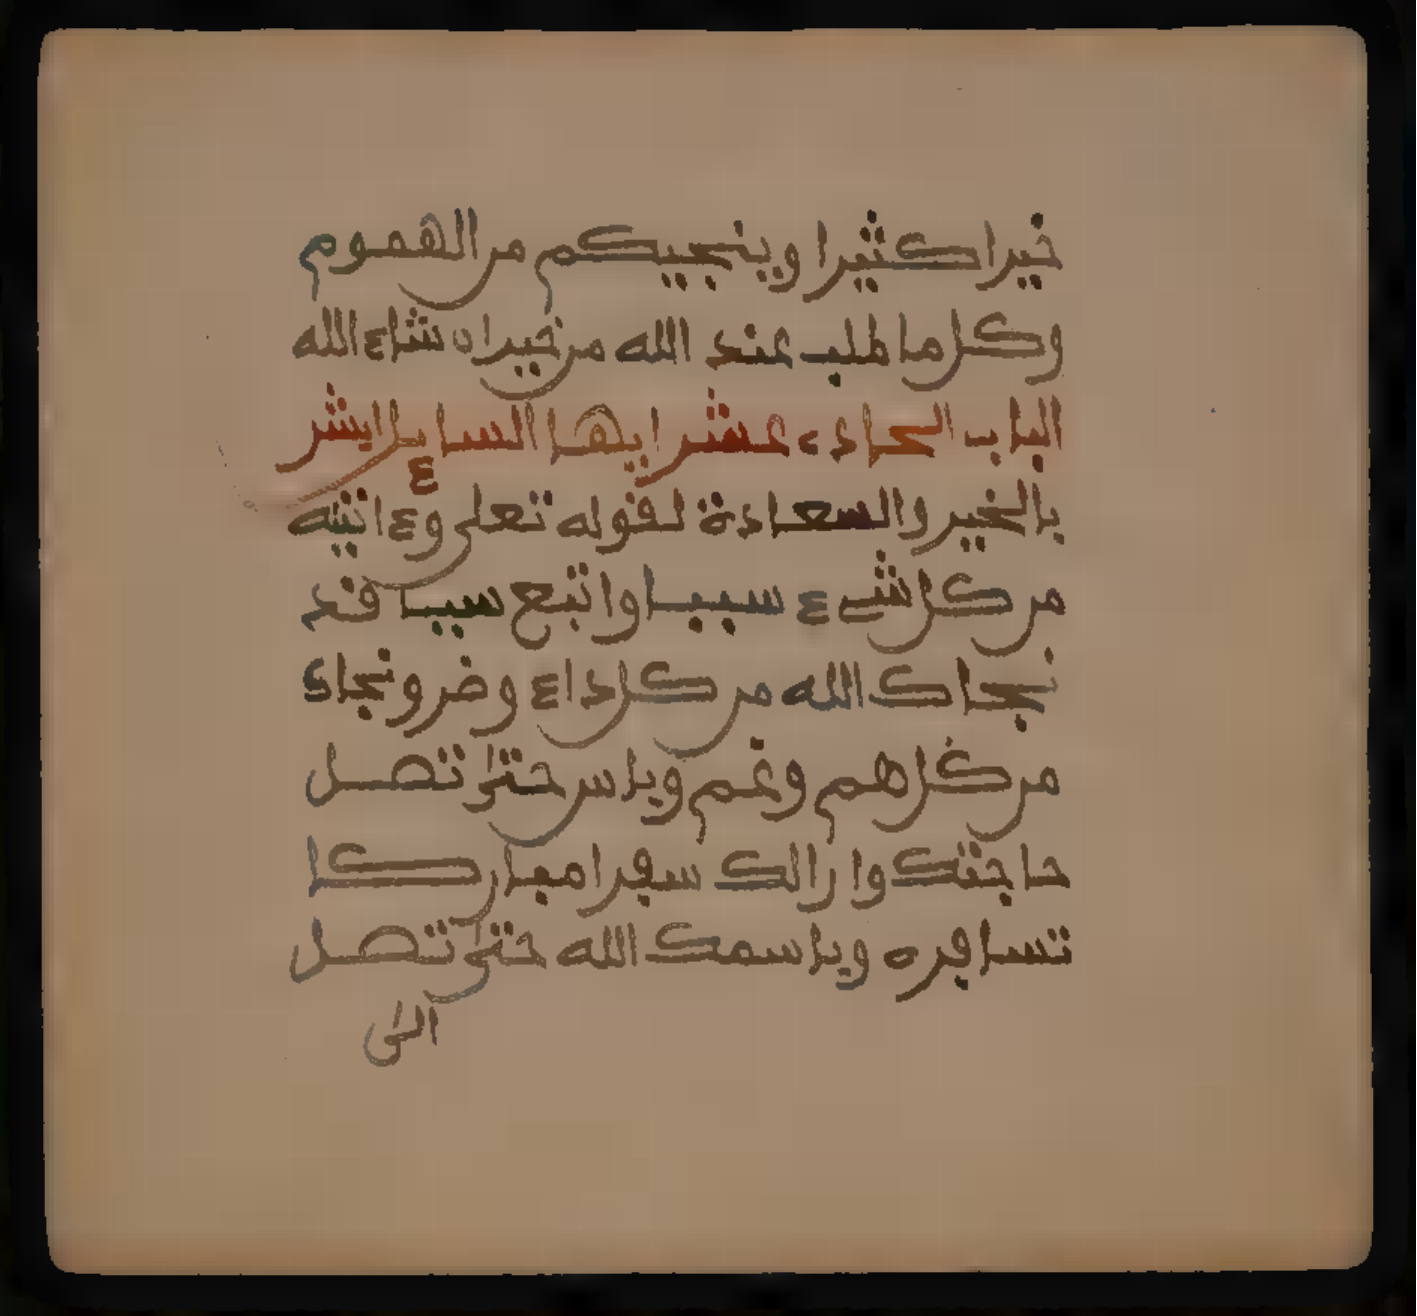 خيرا كثيرا وينجيكم من الهموم
وكل ما طلب عند الله من خير ان شاء الله
الباب الحادي عشر ايها السايل ابشر
بالخير والسعادة لقوله تعلى وءاتينه
من كل شيء سببا واتبع سببا قد
نجاك الله من كل داء وضر ونجاك
من كل هم وغم وباس حتى تصل
حاجتك وان لك سفرا مباركا
تسافره وباسمك الله حتى تصل
الى